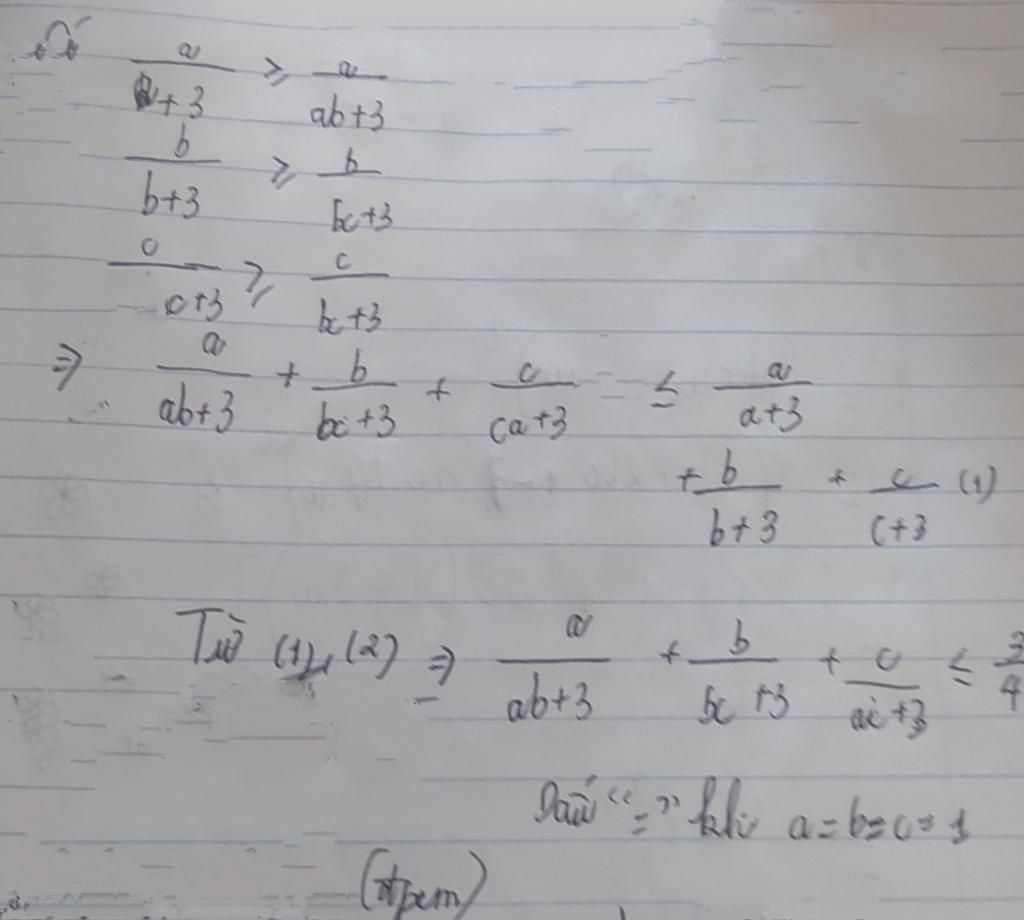 a/(a+3) ≥ a/(ab+3)
b/(b+3) ≥ b/(bc+3)
c/(c+3) ≥ c/(bc+3)
⇒ a/(ab+3) + b/(bc+3) + c/(ca+3) ≤ a/(a+3)
+ b/(b+3) + c/(c+3) (1)
Từ (1), (2) ⇒ a/(ab+3) + b/(bc+3) + c/(ac+3) ≤ 3/4
Dấu "=" khi a=b=c=1
(đpcm)